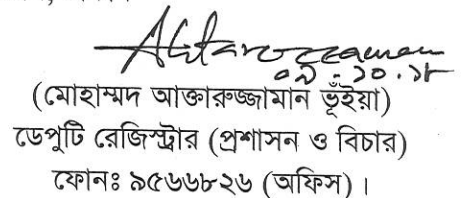 Aktaruzzaman
০৯-১০.১৮
(মোহাম্মদ আক্তারুজ্জামান ভূঁইয়া)
ডেপুটি রেজিস্ট্রার (প্রশাসন ও বিচার)
ফোনঃ ৯৫৬৬৮২৬ (অফিস)।